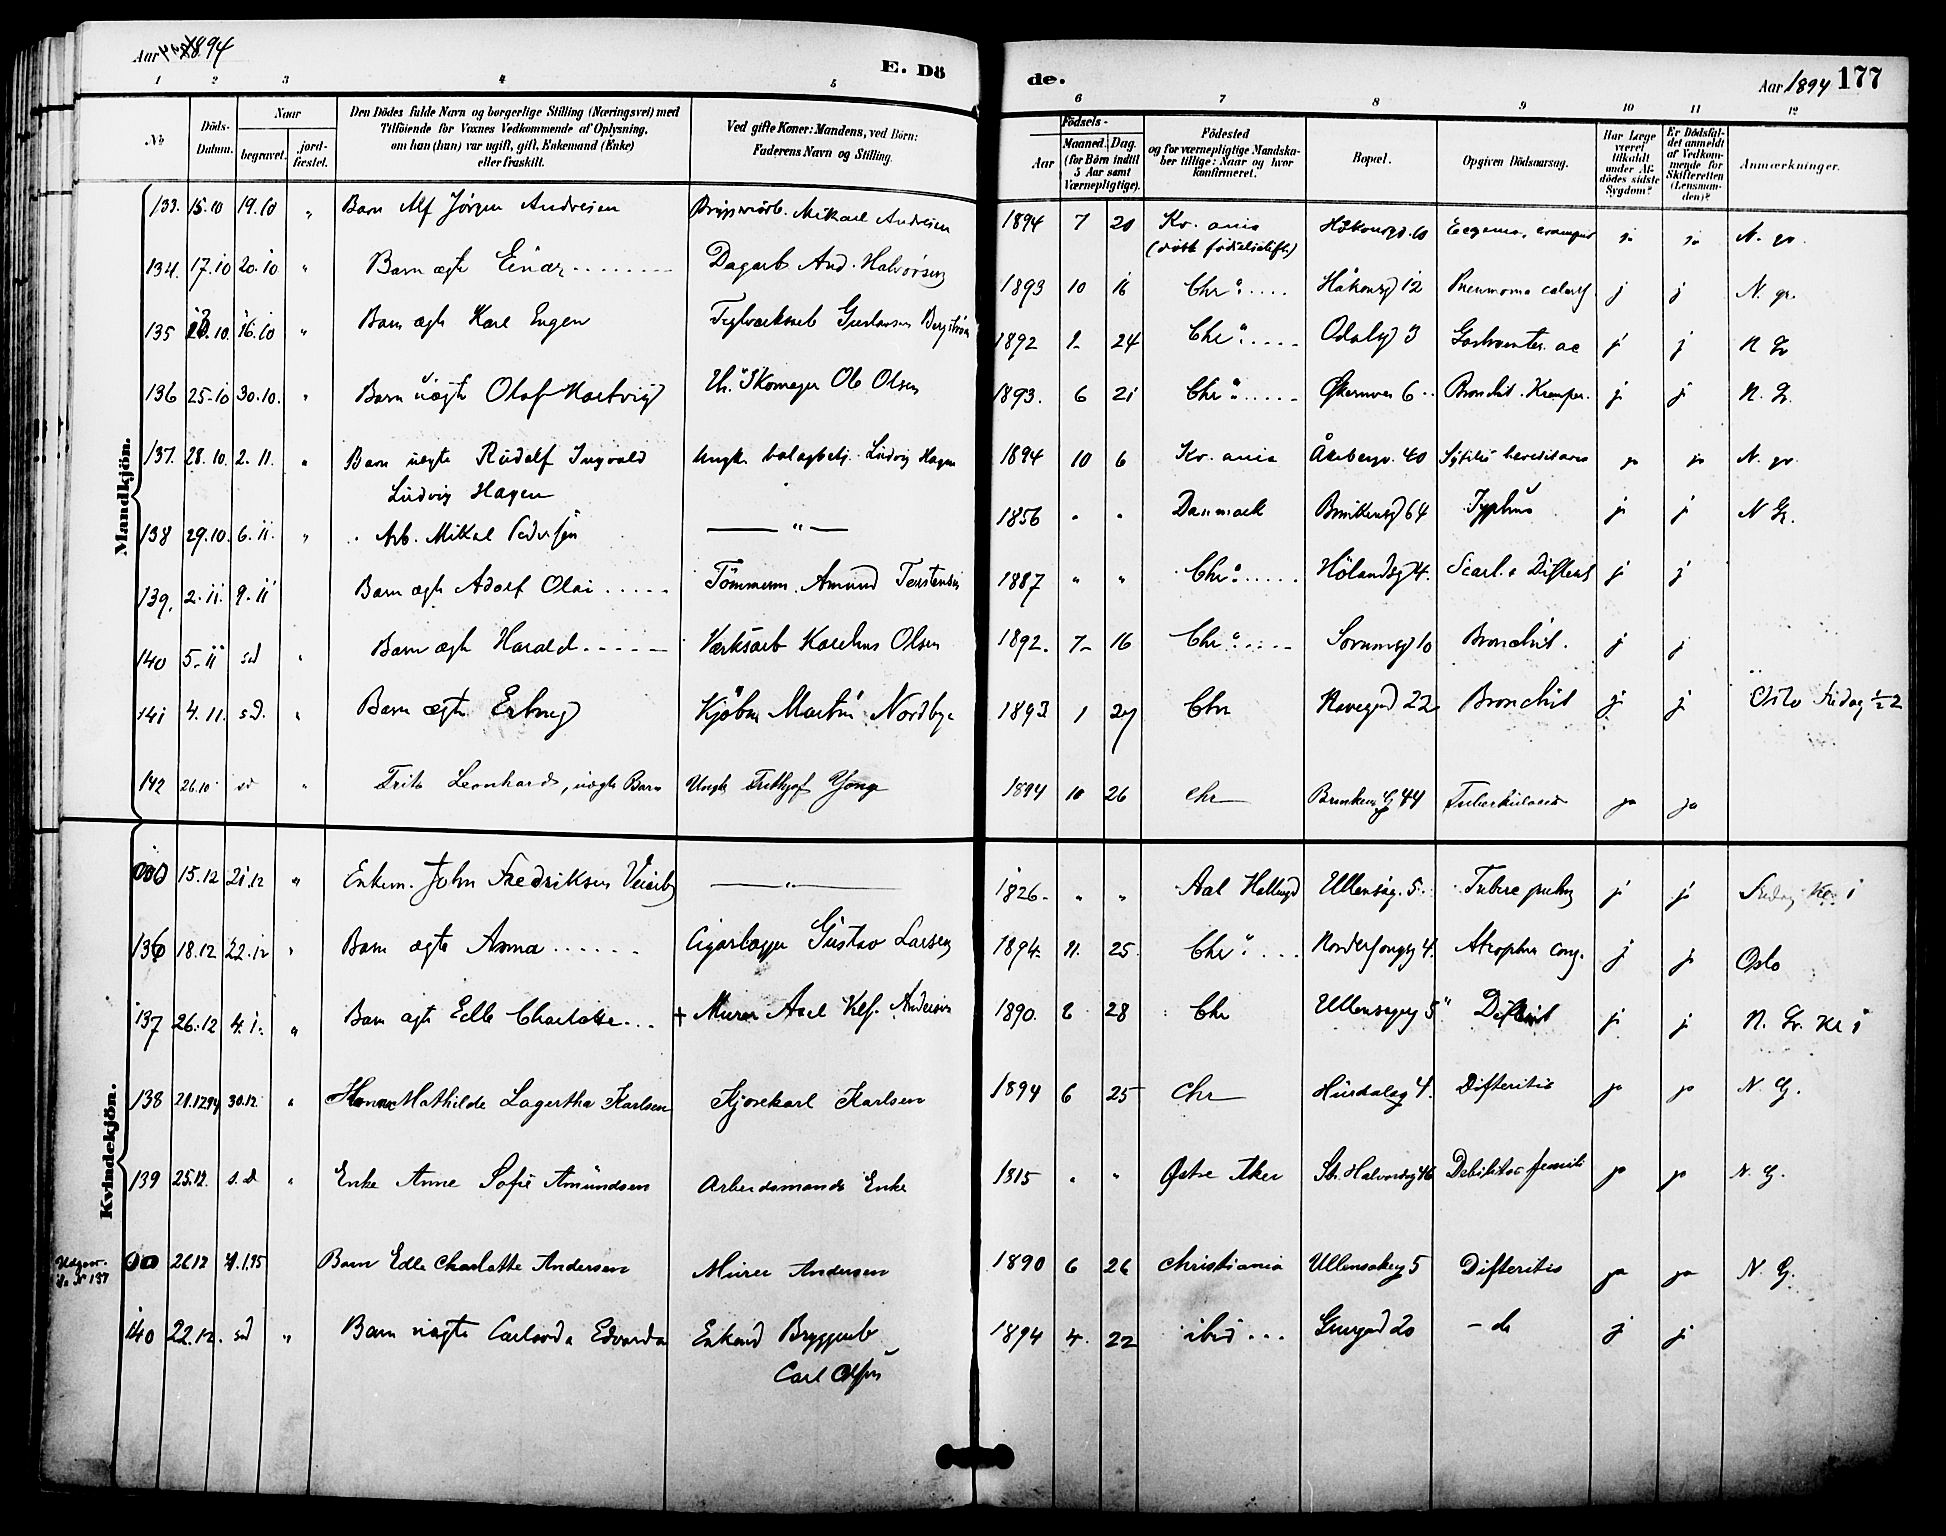 Aar 1894
E. Dö
de.
Aar 1894 177
1 2 3 4 5 6 7 8 9 10 11 12
No
Döds-Datum.
Naar
begravet.
jord-fæstet.
Den Dödes fulde Navn og borgerlige Stilling (Næringsvei) med
Tilföiende for Voxnes Vedkommende af Oplysning,
om han (hun) var ugift, gift, Enkemand (Enke)
eller fraskilt.
Ved gifte Koner: Mandens, ved Börn:
Faderens Navn og Stilling.
Födsels-
Aar
Maaned. Dag.
(for Børn indtil
5 Aar samt
Værnepligtige).
Födested
og for værnepligtige Mandska-
ber tillige: Naar og hvor
konfirmeret.
Bopæl.
Opgiven Dödsaarsag.
Har Læge
været
tilkaldt
under Af-
dödes sidste
Sygdom?
Er Dödsfal-
det anmeldt
af Vedkom-
mende for
Skifteretten
(Lensman-
den)?
Anmærkninger.
Mandkjön.
133. 15.10 19.10 " Barn Alf Jörgen Andresen Mikael Andresen 1894 7 20 Kr.ania Håkonsgd. 10 Eczema, cramper ja ja N. gr.
(dött fødselsstift)
134. 17.10 20.10 " Barn ægte Einar Dagarb. And. Halvorsen 1893 10 16 Chr.a Håkonsgd 12 Pneumonia catarrh j j N. gr.
135 13.10. 16.10 " Barn ægte Karl Eugen Teglverksarb Gustavsen Bergström 1892 24 Chr.a Odalsgd 3 Gastroenter. ac j j N Gr
136 25.10 30.10. " Barn uægte Olaf Hartvig Skomager Ole Olsen 1893. 6 21 Chr.a Økernvei 6 Bronchit. Kramper. j j N. Gr.
137. 28.10. 2.11. " Barn uægte Rudolf Ingvald Ungk. bolagbetj. Ludvig Hagen 1894 10 6 Kr.ania Åkebergv. 40 Syfilis hereditaria ja ja N. gr.
Ludvig Hagen
138 29.10. 6.11. " Arb. Mikal Pedersen — " — 1856 " " Danmark Brinkensgd 64 Typhus j j N Gr.
139. 2.11. 9.11 Barn ægte Adolf Olai Tömmerm. Amund Torstensen 1887 " " Chr.a Hölandsgd 4. Scarl. & Difterit j j
140 5.11 sd " Barn ægte Harald Værksarb Karelius Olsen 1892. 7 16 Chr.a Sorumsgd 10 Bronchit. j j
141 4.11. s.d. " Barn ægte Erling Kjöbm Martin Nordbye 1893 1 27 Chr Havegad 22 Bronchit j j Oslo Fredag ½2
142 26.10 sd " Frits Leonhard, uægte Barn Ungk. Frithjof Yong 1894 10 26 Chr Brinkens G 44 Tuberkulosis ja ja
Kvindekjön.
15.12 21.12 " Enkem. John Fredriksen Veiarb — " — 1826. " " Aal Hallingd Ullensagr. 5. Tuberc pulm j j Fredag Kr. i
136 18.12 22.12 " Barn ægte Anna Cigarlægger Gustav Larsen 1894. 11. 25. Chr.a Nordre 4. Atrophia cong. j j Oslo
137 26.12 4.1. " Barn ægte Edle Charlotte + Murer Axel Andersen 1890. 6 28 Chr Ullensagrg 5 Difterit j j N. Gr. Kl 1
138 21.12.94 30.12 " Hanna Mathilde Lagertha Karlsen Kjørekarl Karlsen 1894 6 25 Chr Hurdalsg 4. Difteritis ja ja N. G.
139 25.12. s.d " Enke Anne Sofie Amundsen Arbeidsmands Enke 1815 " " Østre Aker St. Halvardsg 46 Debilitas senilis ja ja N. G.
Udgaar. Se N 137 26.12 4.1.95 Barn Edle Charlotte Andersen Murer Andersen 1890 6 26 Christiania Ullensakerg 5 Difteritis ja ja N. G.
140 22.12. sd " Barn uægte Carlovda Edvarda Enkmd Bryggearb 1894 4. 22 ibid 20 — do j j
Carl Olsen